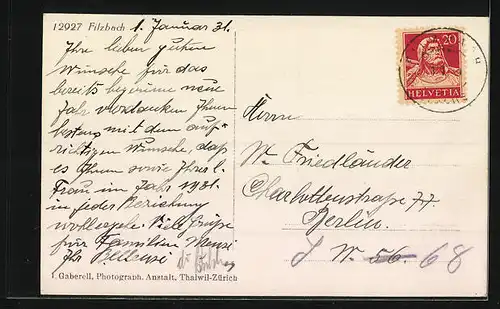 12927 Filzbach 1. Januar 31.
Ihre lieben guten
Wünsche für das
bereits begonnene neue
Jahr verdanken Ihnen
bestens mit dem auf-
richtigen Wunsche, daß
es Ihnen sowie Ihrer l.
Frau im Jahr 1931
in jeder Beziehung
wohlergehe. Viele Grüße
für Familien
Ihr
I. Gaberell, Photograph. Anstalt, Thalwil-Zürich
20
HELVETIA
Herrn
W. Friedländer
Charlottenstraße 77.
Berlin.
W. 56. 68